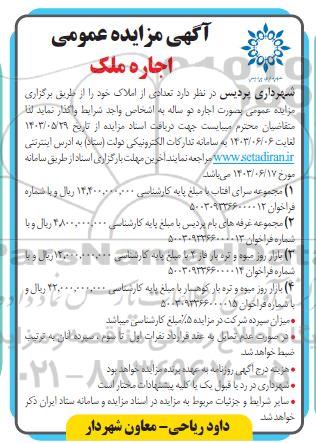 آگهی مزایده عمومی
اجاره ملک
شهرداری پردیس در نظر دارد تعدادی از املاک خود را از طریق برگزاری
مزایده عمومی بصورت اجاره دو ساله به اشخاص واجد شرایط واگذار نماید لذا
متقاضیان محترم میبایست جهت دریافت اسناد مزایده از تاریخ ۱۴۰۳/۰۵/۲۹
لغایت ۱۴۰۳/۰۶/۰۶ به سامانه تدارکات الکترونیکی دولت (ستاد) به آدرس اینترنتی
www.setadiran.ir مراجعه نمایند آخرین مهلت بارگزاری اسناد از طریق سامانه
مورخ ۱۴۰۳/۰۶/۱۷ می‌باشد.
۱) مجموعه سرای آفتاب با مبلغ پایه کارشناسی ۱۴,۴۰۰,۰۰۰,۰۰۰ ریال و با شماره
فراخوان ۵۰۰۳۰۹۳۳۶۶۰۰۰۰۱۲
۲) مجموعه غرفه های بام پردیس با مبلغ پایه کارشناسی ۴,۸۰۰,۰۰۰,۰۰۰ ریال و با
شماره فراخوان ۵۰۰۳۰۹۳۳۶۶۰۰۰۰۱۳
۳) بازار روز میوه و تره بار فاز ۲ با مبلغ پایه کارشناسی ۱۲,۰۰۰,۰۰۰,۰۰۰ ریال و با
شماره فراخوان ۵۰۰۳۰۹۳۳۶۶۰۰۰۰۱۴
۴) بازار روز میوه و تره بار کوهسار با مبلغ پایه کارشناسی ۴۲,۰۰۰,۰۰۰,۰۰۰ ریال و
با شماره فراخوان ۵۰۰۳۰۹۳۳۶۶۰۰۰۰۱۵
• میزان سپرده شرکت در مزایده ۵٪ مبلغ کارشناسی میباشد
• در صورت عدم تمایل به عقد قرارداد نفرات اول تا سوم، سپرده آنان به ترتیب
ضبط خواهد شد.
• هزینه درج آگهی روزنامه به عهده برنده مزایده خواهد بود
• شهرداری در رد یا قبول یک یا کلیه پیشنهادات مختار است
• سایر شرایط و جزئیات مربوط به مزایده در اسناد مزایده و سامانه ستاد ایران ذکر
خواهد شد.
داود ریاحی- معاون شهردار